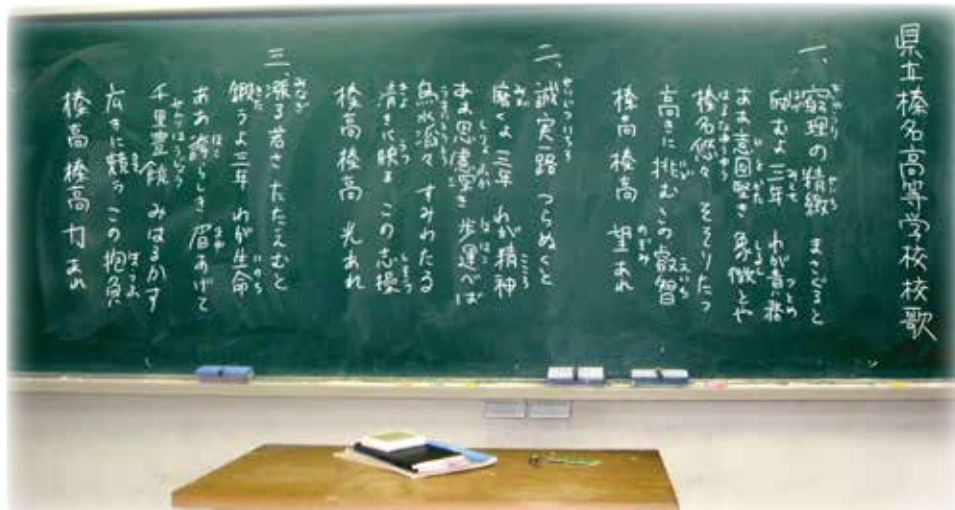 県立榛名高等学校校歌
一、
窮理の精緻 まさぐると
励むよ三年 わが責務
ああ意図堅き 象徴とや
榛名悠々 そそりたつ
高きに挑む この叡智
榛高榛高 望あれ
二、
誠実一路 つらぬくと
磨くよ三年 わが精神
ああ 歩運べば
烏水滔々 すみわたる
清きに映す この志操
榛高榛高 光あれ
三、
漲る若さ たたえむと
鍛うよ三年 わが生命
ああ誇らしき 眉あげて
千里豊饒 みはるかす
広きに競う この抱負
榛高榛高 力あれ